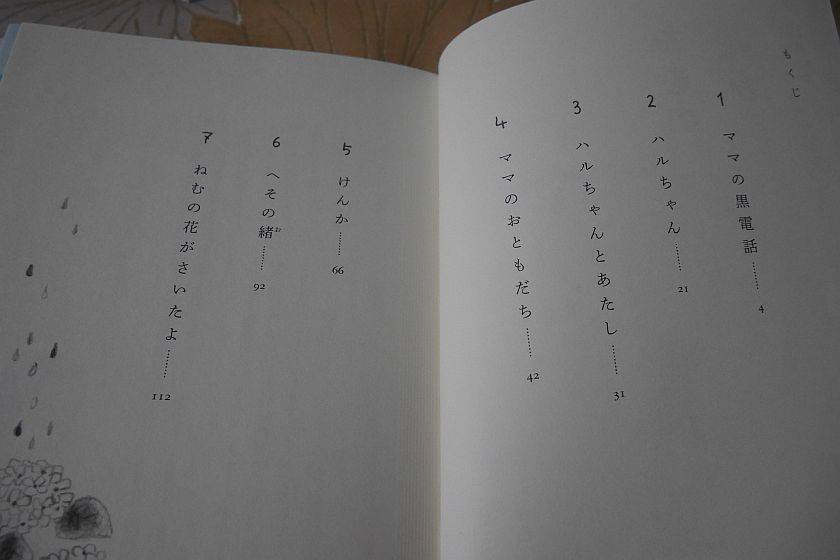 もくじ
1 ママの黒電話……4
2 ハルちゃん……21
3 ハルちゃんとあたし……31
4 ママのおともだち……42
5 けんか……66
6 へその緒……92
7 ねむの花がさいたよ……112